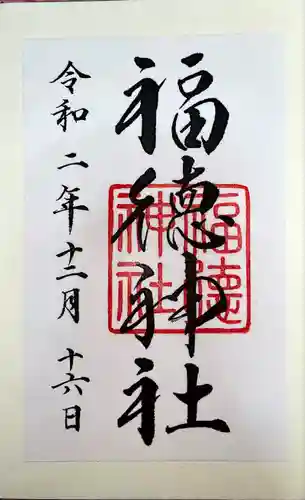 福徳神社
福徳神社
令和二年十二月十六日